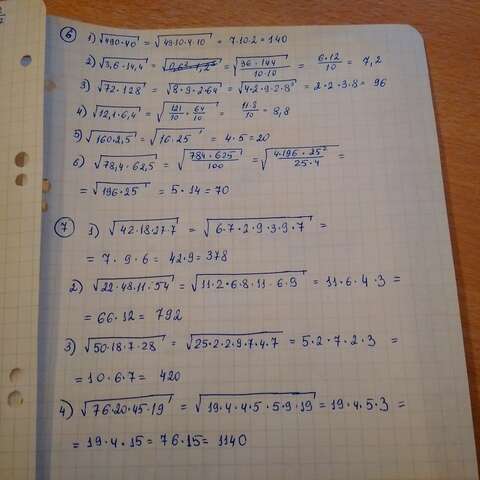 6 1) √490·40 = √49·10·4·10 = 7·10·2=140
2) √3,6·14,4 = √36·144/10·10 = 6·12/10 = 7,2
3) √72·128 = √8·9·2·64 = √4·2·9·2·8² = 2·2·3·8= 96
4) √12,1·6,4 = √121/10·64/10 = 11·8/10 = 8,8
5) √160·2,5 = √16·25 = 4·5=20
6) √78,4·62,5 = √784·625/100 = √4·196·25²/25·4 =
= √196·25 = 5·14=70
7 1) √42·18·27·7 = √6·7·2·9·3·9·7 =
= 7·9·6= 42·9= 378
2) √22·48·11·54 = √11·2·6·8·11·6·9 = 11·6·4·3 =
= 66·12= 792
3) √50·18·7·28 = √25·2·2·9·7·4·7 = 5·2·7·2·3 =
= 10·6·7= 420
4) √76·20·45·19 = √19·4·4·5·5·9·19 = 19·4·5·3 =
= 19·4·15= 76·15= 1140